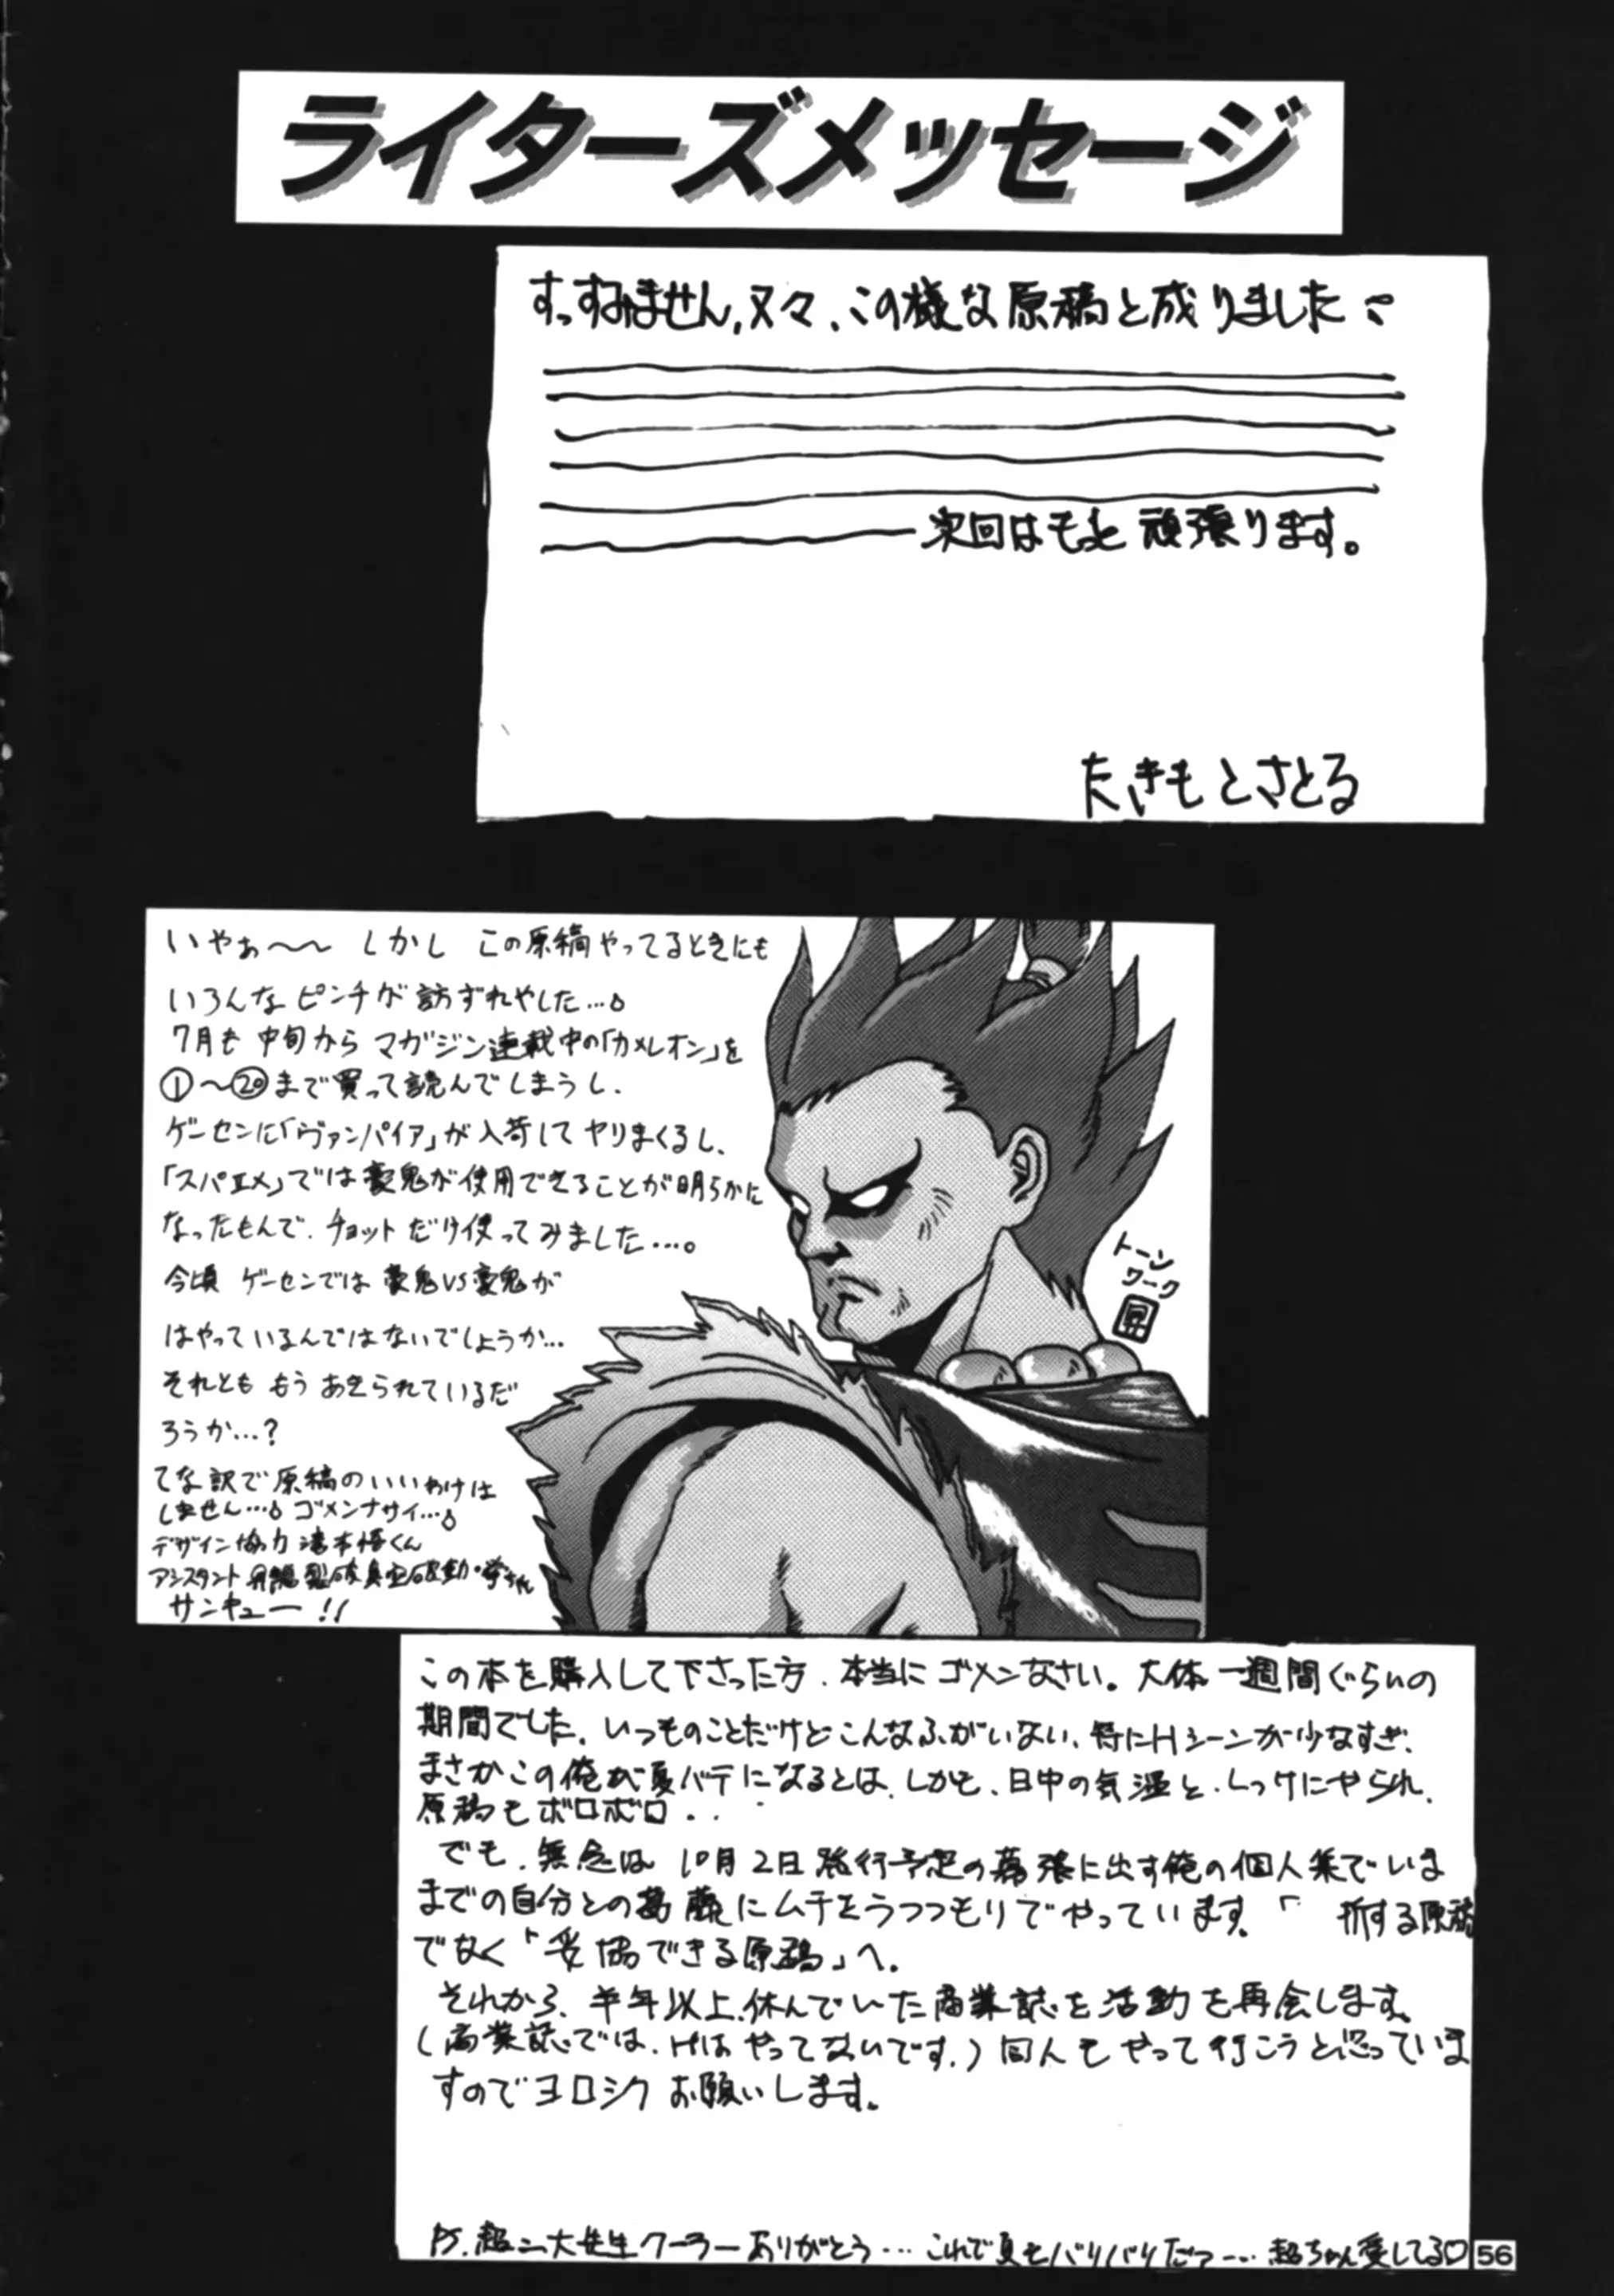 ライターズメッセージ
すっすみません,又々、この様な原稿と成りました
次回はもっと頑張ります。
たきもとさとる
いやぁ〜〜 しかし この原稿やってるときにも
いろんなピンチが訪ずれやした…
7月も中旬から マガジン連載中の「カメレオン」を
①〜⑳まで買って読んでしまうし、
ゲーセンに「ヴァンパイア」が入荷してヤリまくるし、
「スパエメ」では豪鬼が使用できることが明らかに
なったもんで、チョットだけ使ってみました…。
今頃 ゲーセンでは 豪鬼VS豪鬼が
はやっているんではないでしょうか…
それとも もう あきられているだ
ろうか…?
てな訳で原稿のいいわけは
しません… ゴメンナサイ…
デザイン協力 滝本悟くん
アシスタント
サンキュー!!
トーン
ワーク
昇
この本を購入して下さった方、本当にゴメンなさい。大体一週間ぐらいの
期間でした。いつものことだけどこんなふがいない、特にHシーンが少なすぎ、
まさかこの俺が夏バテになるとは、しかも、日中の気温と、しっけにやられ、
原稿もボロボロ・・・
でも、無念は 10月2日発行予定の幕張に出す俺の個人集でいま
までの自分との葛藤にムチをうつつもりでやっています。「 折する原稿
でなく「妥協できる原稿」へ。
それから、半年以上、休んでいた商業誌を活動を再会します。
(商業誌では、Hはやってないです。)同人もやって行こうと思っていま
すのでヨロシクお願いします。
PS. 超二大先生クーラーありがとう… これで夏もバリバリだァ… 超ちゃん愛してる♡
56